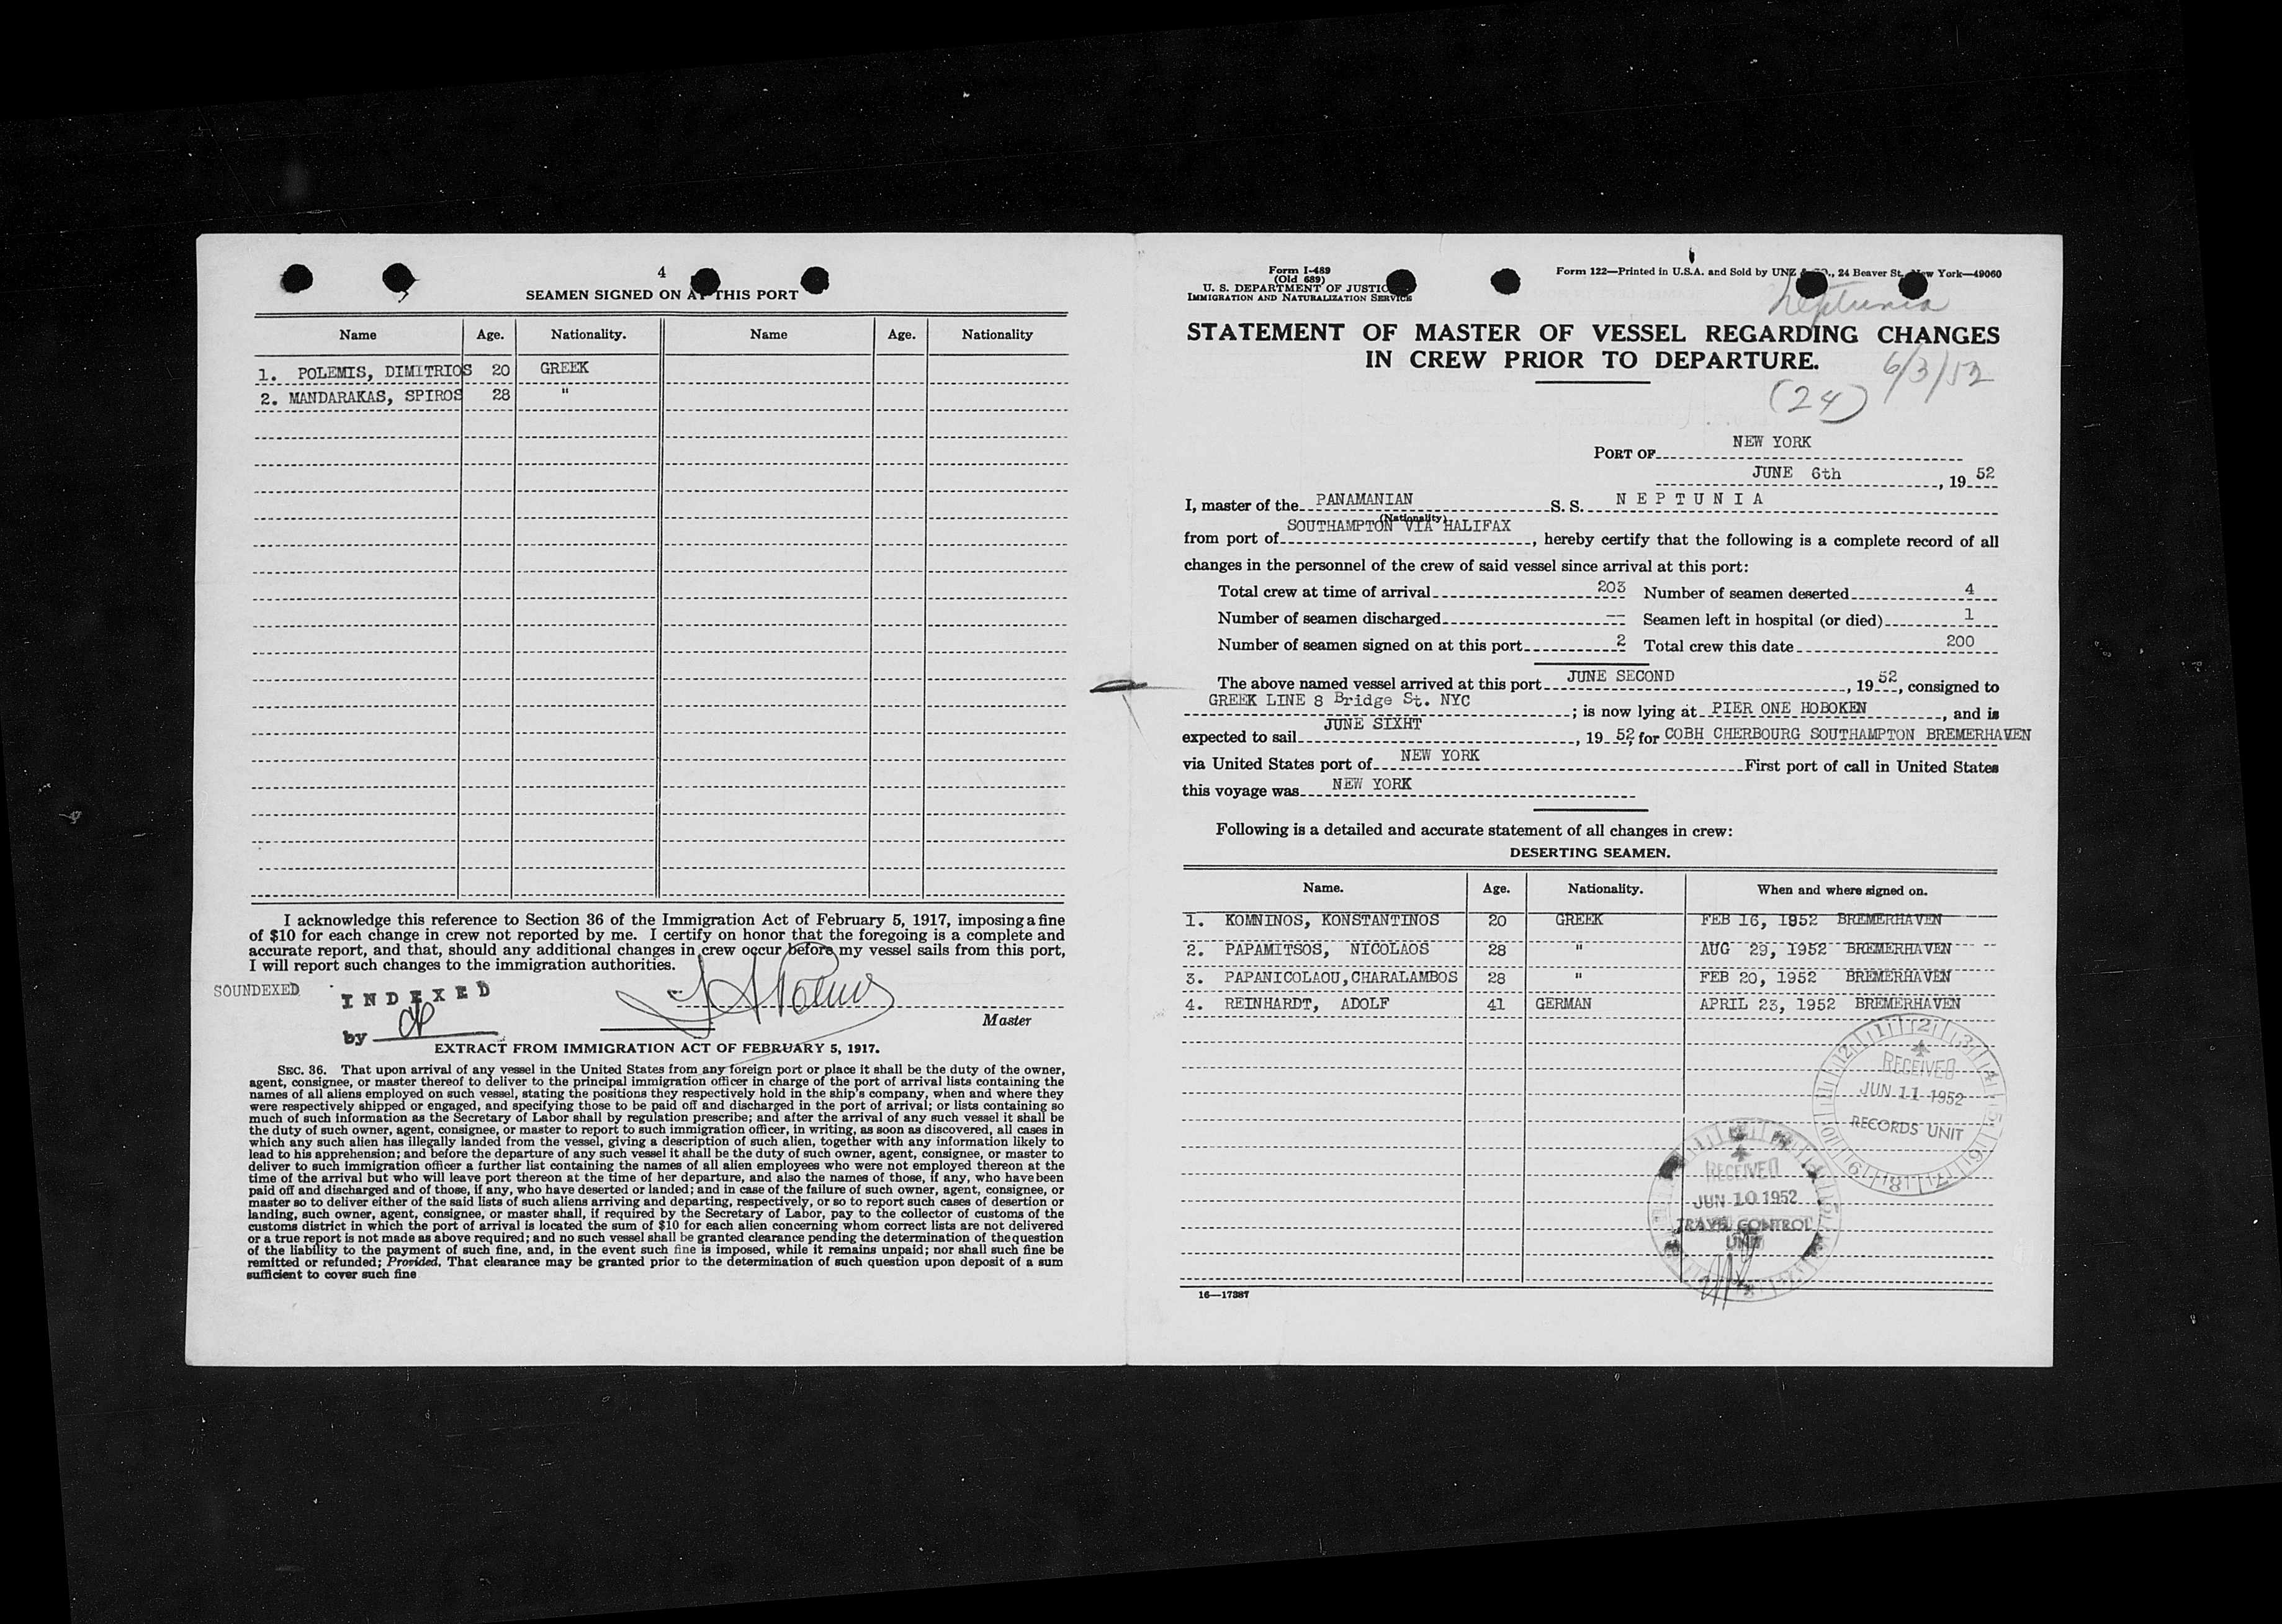 4
SEAMEN SIGNED ON AT THIS PORT
Name Age. Nationality. Name Age. Nationality
1. POLEMIS, DIMITRIOS 20 GREEK
2. MANDARAKAS, SPIROS 28 "
I acknowledge this reference to Section 36 of the Immigration Act of February 5, 1917, imposing a fine
of $10 for each change in crew not reported by me. I certify on honor that the foregoing is a complete and
accurate report, and that, should any additional changes in crew occur before my vessel sails from this port,
I will report such changes to the immigration authorities.
SOUNDEXED
INDEXED
by
Master
EXTRACT FROM IMMIGRATION ACT OF FEBRUARY 5, 1917.
SEC. 36. That upon arrival of any vessel in the United States from any foreign port or place it shall be the duty of the owner,
agent, consignee, or master thereof to deliver to the principal immigration officer in charge of the port of arrival lists containing the
names of all aliens employed on such vessel, stating the positions they respectively hold in the ship's company, when and where they
were respectively shipped or engaged, and specifying those to be paid off and discharged in the port of arrival; or lists containing so
much of such information as the Secretary of Labor shall by regulation prescribe; and after the arrival of any such vessel it shall be
the duty of such owner, agent, consignee, or master to report to such immigration officer, in writing, as soon as discovered, all cases in
which any such alien has illegally landed from the vessel, giving a description of such alien, together with any information likely to
lead to his apprehension; and before the departure of any such vessel it shall be the duty of such owner, agent, consignee, or master to
deliver to such immigration officer a further list containing the names of all alien employees who were not employed thereon at the
time of the arrival but who will leave port thereon at the time of her departure, and also the names of those, if any, who have been
paid off and discharged and of those, if any, who have deserted or landed; and in case of the failure of such owner, agent, consignee, or
master so to deliver either of the said lists of such aliens arriving and departing, respectively, or so to report such cases of desertion or
landing, such owner, agent, consignee, or master shall, if required by the Secretary of Labor, pay to the collector of customs of the
customs district in which the port of arrival is located the sum of $10 for each alien concerning whom correct lists are not delivered
or a true report is not made as above required; and no such vessel shall be granted clearance pending the determination of the question
of the liability to the payment of such fine, and, in the event such fine is imposed, while it remains unpaid; nor shall such fine be
remitted or refunded; Provided, That clearance may be granted prior to the determination of such question upon deposit of a sum
sufficient to cover such fine
Form I-489
(Old 689)
U. S. DEPARTMENT OF JUSTICE
IMMIGRATION AND NATURALIZATION SERVICE
Form 122—Printed in U.S.A. and Sold by UNZ & CO., 24 Beaver St., New York—49060
Neptunia
STATEMENT OF MASTER OF VESSEL REGARDING CHANGES
IN CREW PRIOR TO DEPARTURE.
6/3/52
(24)
PORT OF NEW YORK
JUNE 6th, 19 52
I, master of the PANAMANIAN S. S. NEPTUNIA
(Nationality)
from port of SOUTHAMPTON VIA HALIFAX, hereby certify that the following is a complete record of all
changes in the personnel of the crew of said vessel since arrival at this port:
Total crew at time of arrival 203 Number of seamen deserted 4
Number of seamen discharged -- Seamen left in hospital (or died) 1
Number of seamen signed on at this port 2 Total crew this date 200
The above named vessel arrived at this port JUNE SECOND, 19 52, consigned to
GREEK LINE 8 Bridge St. NYC; is now lying at PIER ONE HOBOKEN, and is
expected to sail JUNE SIXHT, 19 52, for COBH CHERBOURG SOUTHAMPTON BREMERHAVEN
via United States port of NEW YORK First port of call in United States
this voyage was NEW YORK
Following is a detailed and accurate statement of all changes in crew:
DESERTING SEAMEN.
Name. Age. Nationality. When and where signed on.
1. KOMNINOS, KONSTANTINOS 20 GREEK FEB 16, 1952 BREMERHAVEN
2. PAPAMITSOS, NICOLAOS 28 " AUG 29, 1952 BREMERHAVEN
3. PAPANICOLAOU, CHARALAMBOS 28 " FEB 20, 1952 BREMERHAVEN
4. REINHARDT, ADOLF 41 GERMAN APRIL 23, 1952 BREMERHAVEN
RECEIVED
JUN 11 1952
RECORDS UNIT
RECEIVED
JUN 10 1952
TRAVEL CONTROL
UNIT
16—17387